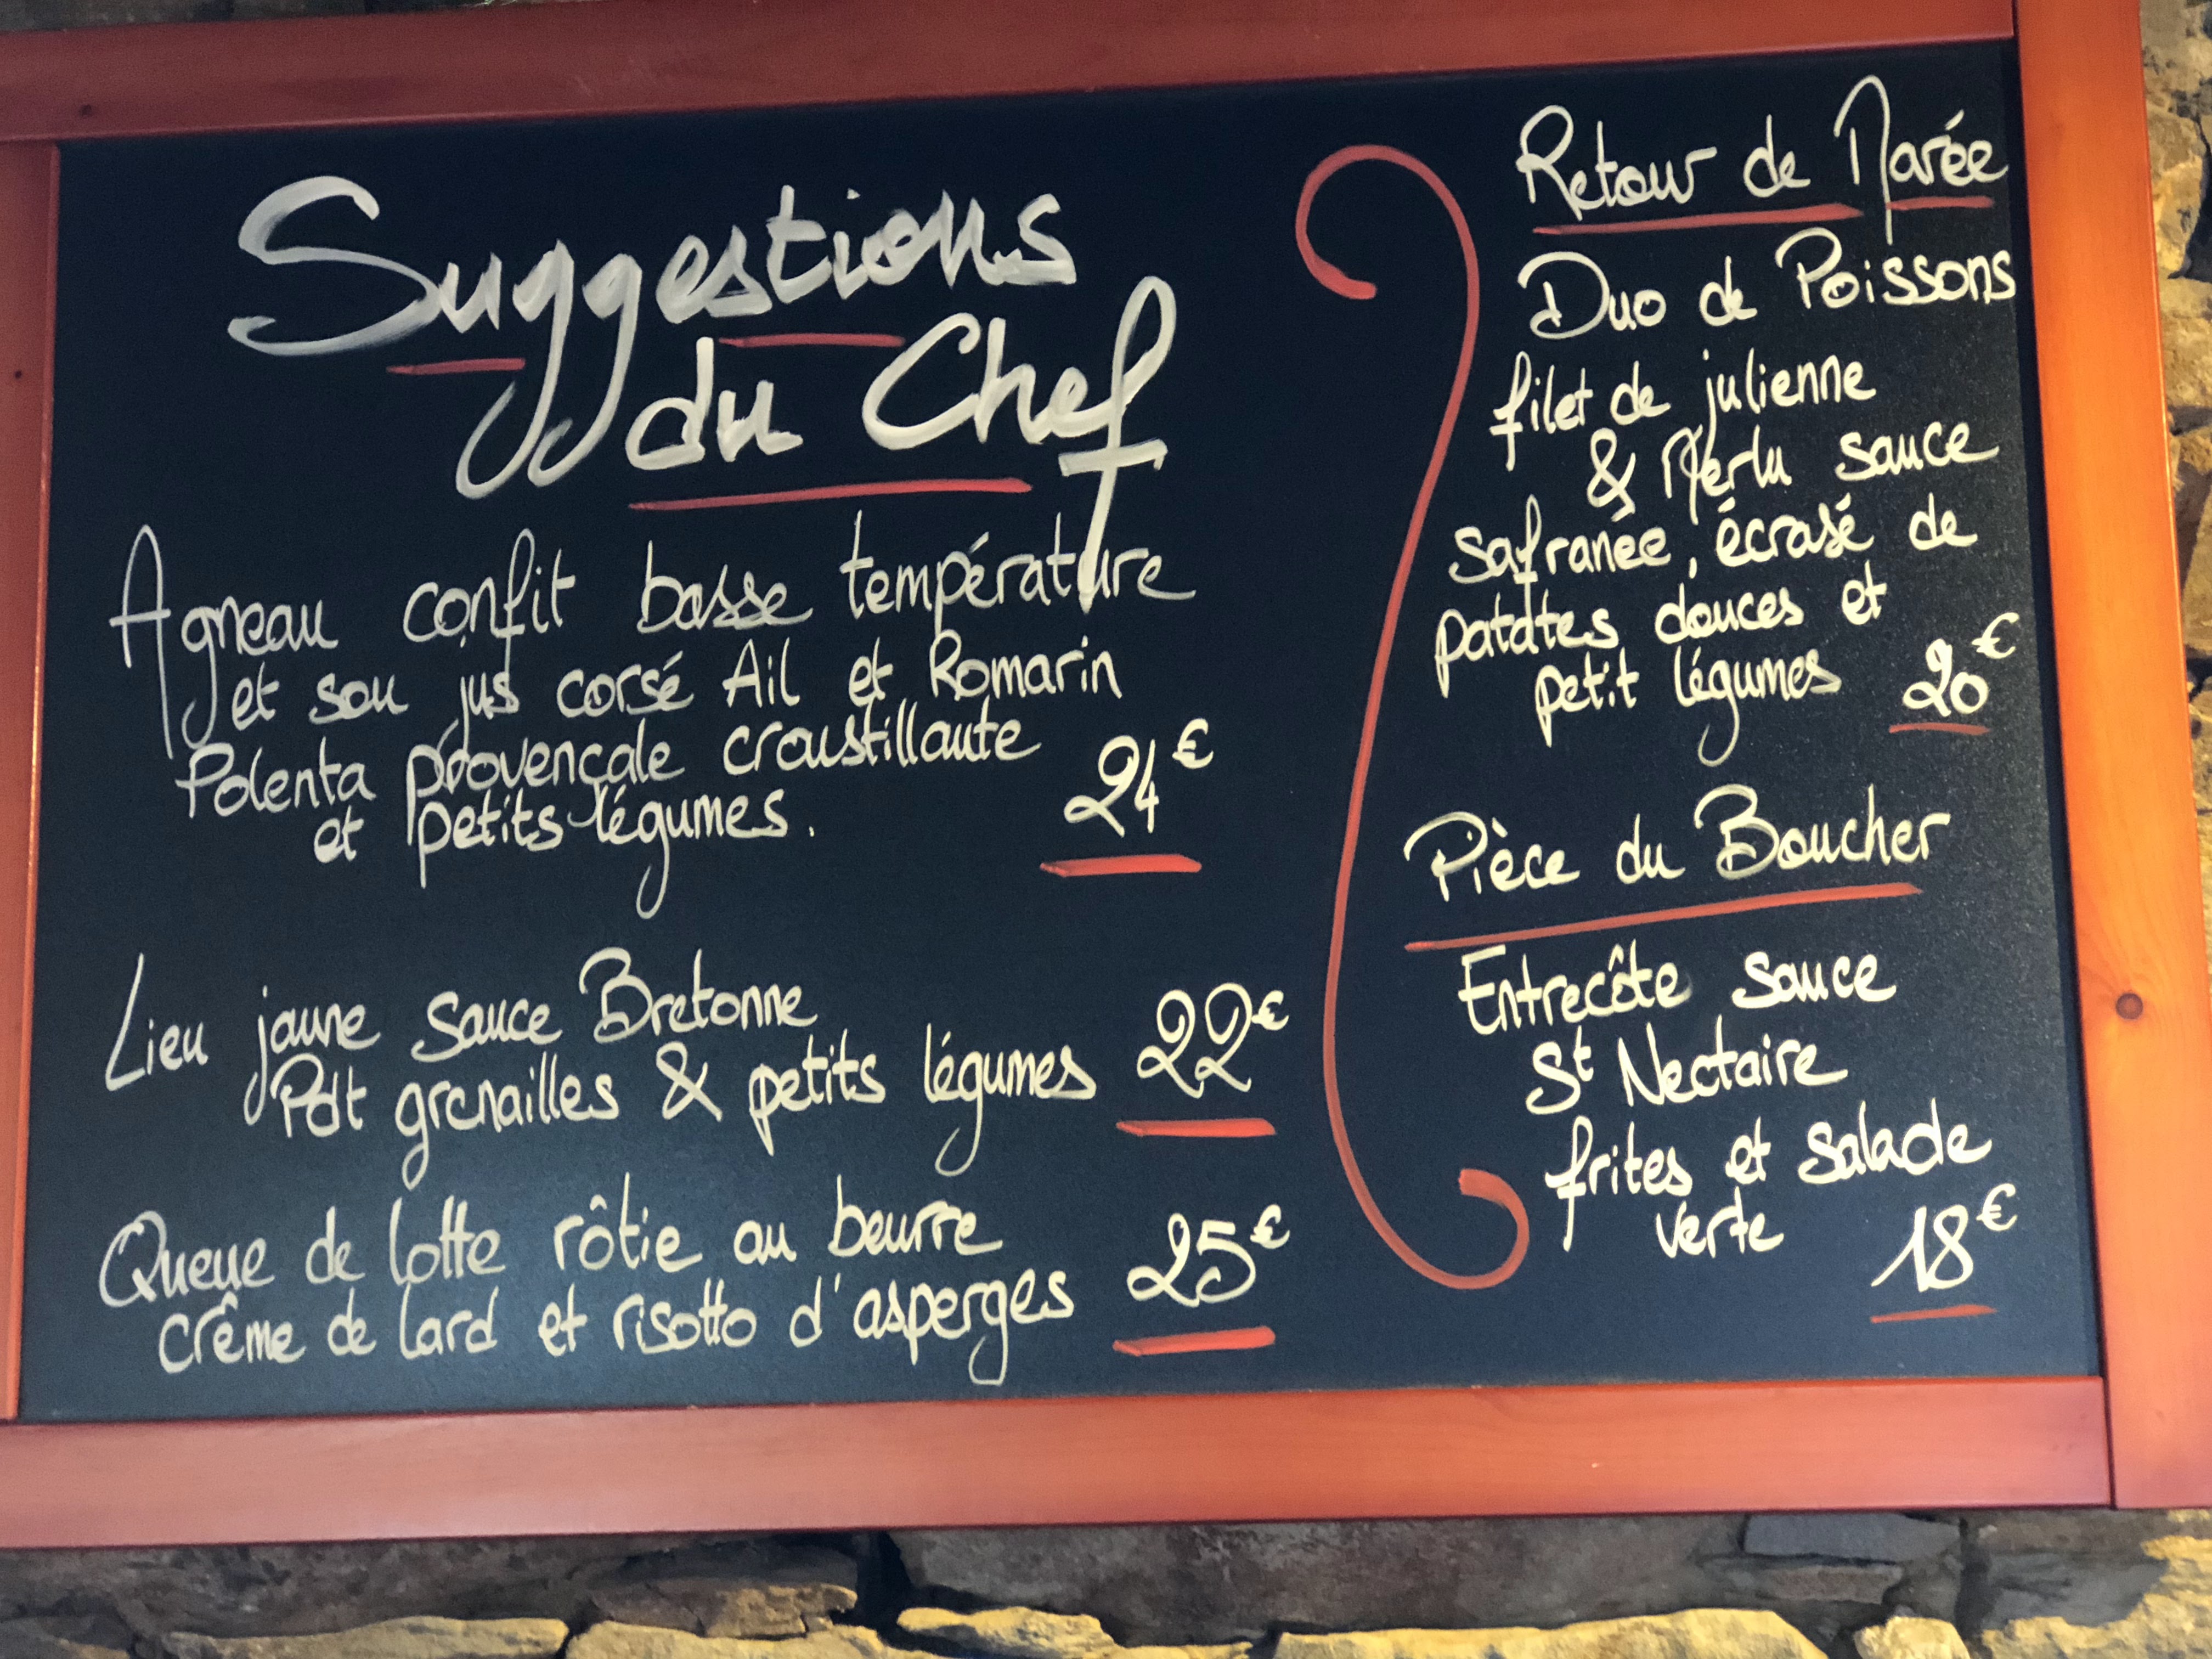 Suggestions
du Chef
Agneau confit basse température
et son jus corsé Ail et Romarin
Polenta provençale croustillante
et petits légumes.
24€
Lieu jaune sauce Bretonne
Pdt grenailles & petits légumes
22€
Queue de lotte rôtie au beurre
crême de lard et risotto d'asperges
25€
Retour de Marée
Duo de Poissons
filet de julienne
& Merlu sauce
safranée, écrasé de
patates douces et
petit légumes 20€
Pièce du Boucher
Entrecôte sauce
St Nectaire
frites et salade
verte
18€